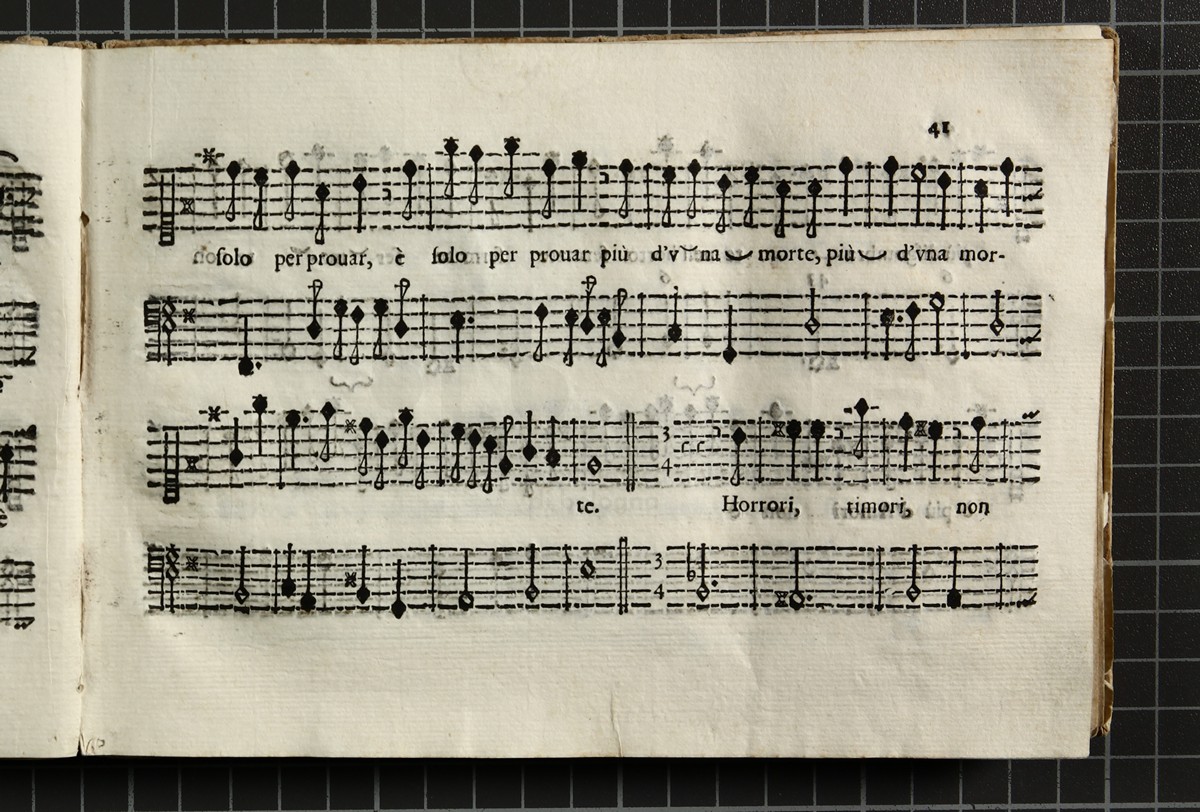 41
ſolo per prouar, è ſolo per prouar più d'vna morte, più d'vna mor-
3
4
te. Horrori, timori, non
3
4